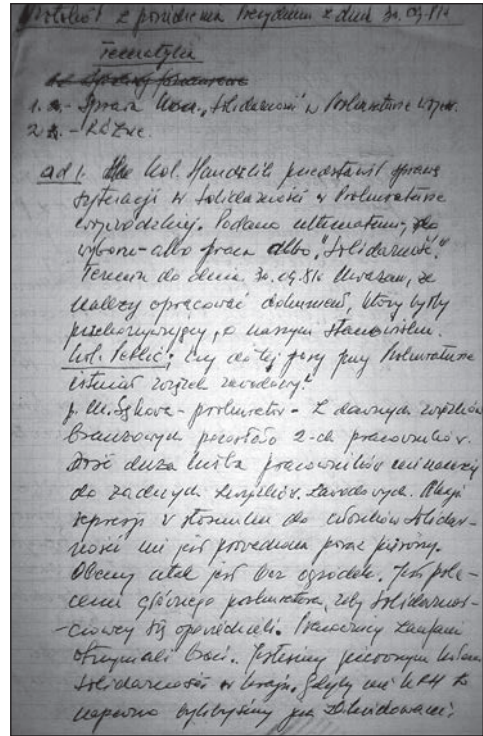 Protokół z posiedzenia Prezydium z dnia 30.09.81r
Tematyka
1. - Sprawa Kom. „Solidarności" w Prokuraturze Wojew.
2. - Różne.
ad 1. Kol. Handzlik przedstawił sprawę
sytuacji w Solidarności w Prokuraturze
Wojewódzkiej. Podano ultimatum, do
wyboru - albo praca albo „Solidarność".
Termin do dnia 30.09.81r Uważam, że
należy opracować dokument, który byłby
przekonywujący, o naszym stanowisku.
Kol. czy do tej pory przy Prokuraturze
istniał związek zawodowy?
p. M. - prokurator - Z dawnych związków
branżowych pozostało 2-ch pracowników.
Dość duża liczba pracowników nie należy
do żadnych związków zawodowych. Akcja
represji w stosunku do członków Solidar-
ności nie jest prowadzona poraz pierwszy.
Obecny atak jest bez ogródek. Jest pole-
cenie głównego prokuratora, żeby Solidarnoś-
-ciowcy się opowiedzieli. Pracownicy
otrzymali . Jesteśmy pierwszym
Solidarności w kraju. Gdyby nie to
napewno bylibyśmy już zlikwidowani.